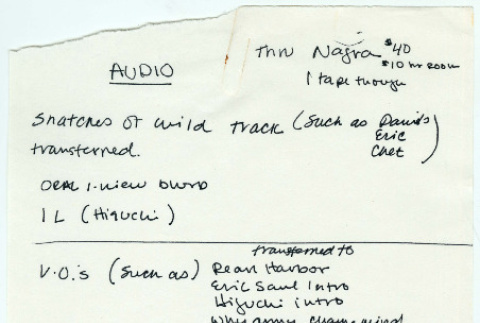 thru Nagra $40
$10 hr room
AUDIO
1 tape though
Snatches of wild track (such as David's
Eric
Chet)
transferred.
ORAL 1-view
1 L (Higuchi)
transferred to
V.O.'s (such as) Pearl Harbor
Eric Saul Intro
Higuchi intro
Why army